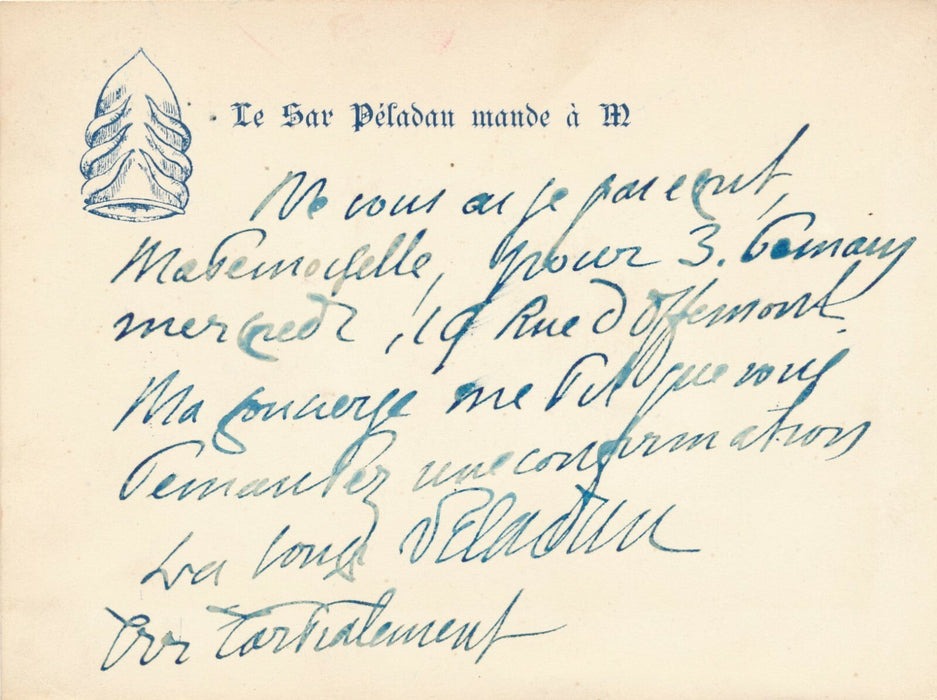 Le Sar Péladan mande à M
Ne vous ai je pas ecrit,
Mademoiselle, pour 3. demain
mercredi, 19 Rue d Offemont.
Ma concierge me dit que vous
demandez une confirmation
La voici Péladan
Très cordialement